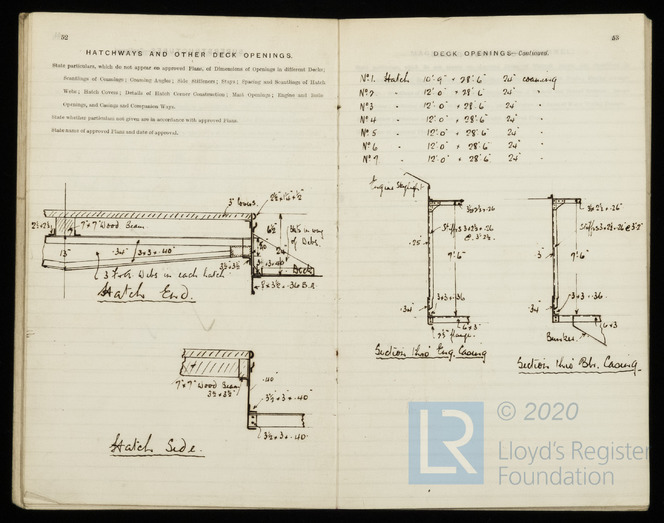 52
HATCHWAYS AND OTHER DECK OPENINGS.
State particulars, which do not appear on approved Plans, of Dimensions of Openings in different Decks;
Scantlings of Coamings; Coaming Angles; Side Stiffeners; Stays; Spacing and Scantlings of Hatch
Webs; Hatch Covers; Details of Hatch Corner Construction; Mast Openings; Engine and Boiler
Openings, and Casings and Companion Ways.
State whether particulars not given are in accordance with approved Plans.
State name of approved Plans and date of approval.
3" Covers.
7"×7" Wood Beam
6½"
of Webs.
13"
.34" 3×3×.40"
24"
Deck
3 Webs in each hatch
8×3½×.36
Hatch End.
7"×7" Wood Beam
3½×3½"
.40"
3½×3×.40"
3½×3×.40
Hatch Side.
53
DECK OPENINGS—Continued.
No 1. Hatch 10'.9" × 28'.6" 24" coaming
No 2 - 12'.0" × 28'.6" 24" "
No 3 - 12'.0" × 28'.6" 24" "
No 4 - 12'.0" × 28'.6" 24" "
No 5 - 12'.0" × 28'.6" 24" "
No 6 - 12'.0" × 28'.6" 24" "
No 7 - 12'.0" × 28'.6" 24" "
Engine Skylight
.25
7'.6"
.34"
3×3×.36
6×3
flange.
Section thro' Eng. Casing
7'.6"
.34"
3×3×.36
6×3
Bunker.
Section thro' Blr. Casing.
LR
© 2020
Lloyd's Register
Foundation